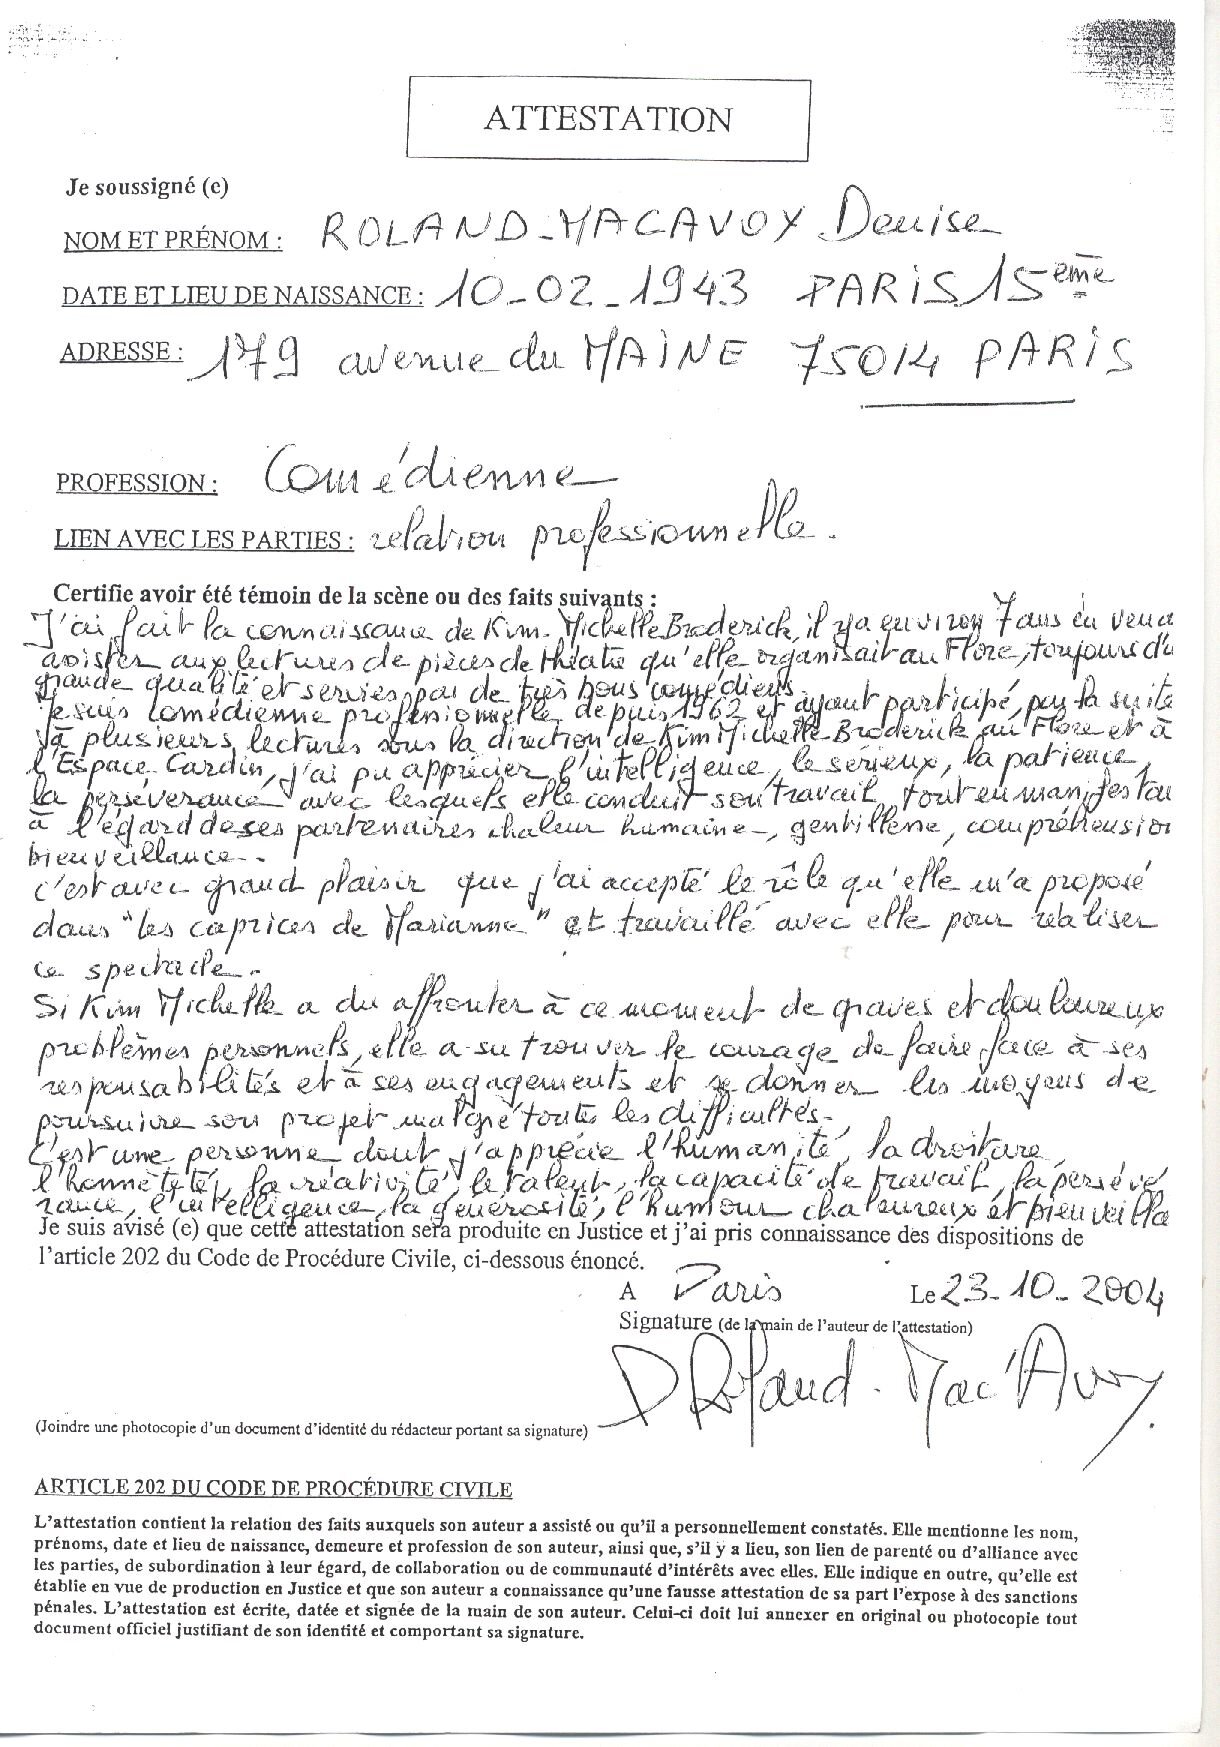 ATTESTATION
Je soussigné (e)
NOM ET PRÉNOM : ROLAND-MACAVOY Denise
DATE ET LIEU DE NAISSANCE : 10-02-1943 PARIS 15ème
ADRESSE : 179 avenue du MAINE 75014 PARIS
PROFESSION : Comédienne
LIEN AVEC LES PARTIES : relation professionnelle.
Certifie avoir été témoin de la scène ou des faits suivants :
J'ai fait la connaissance de Kim-Michelle Broderick, il y a environ 7 ans en venant
assister aux lectures de pièces de théâtre qu'elle organisait au Flore, toujours de
grande qualité et servies par de très bons comédiens.
Je suis comédienne professionnelle depuis 1962 et ayant participé, par la suite
à plusieurs lectures sous la direction de Kim Michelle Broderick au Flore et à
l'Espace Cardin, j'ai pu apprécier l'intelligence, le sérieux, la patience,
la persévérance avec lesquels elle conduit son travail, tout en manifestan
à l'égard de ses partenaires chaleur humaine, gentillesse, compréhension
bienveillance..
C'est avec grand plaisir que j'ai accepté le rôle qu'elle m'a proposé
dans "les caprices de Marianne" et travaillé avec elle pour réaliser
ce spectacle.
Si Kim Michelle a du affronter à ce moment de graves et douloureux
problèmes personnels, elle a su trouver le courage de faire face à ses
responsabilités et à ses engagements et se donner les moyens de
poursuivre son projet malgré toutes les difficultés.
C'est une personne dont j'apprécie l'humanité, la droiture,
l'honnêteté, la créativité, le talent, la capacité de travail, la persévé
rance, l'intelligence, la générosité, l'humour chaleureux et bienveilla
Je suis avisé (e) que cette attestation sera produite en Justice et j'ai pris connaissance des dispositions de
l'article 202 du Code de Procédure Civile, ci-dessous énoncé.
A Paris Le 23-10-2004
Signature (de la main de l'auteur de l'attestation)
D Roland-Mac'Avoy
(Joindre une photocopie d'un document d'identité du rédacteur portant sa signature)
ARTICLE 202 DU CODE DE PROCÉDURE CIVILE
L'attestation contient la relation des faits auxquels son auteur a assisté ou qu'il a personnellement constatés. Elle mentionne les nom,
prénoms, date et lieu de naissance, demeure et profession de son auteur, ainsi que, s'il y a lieu, son lien de parenté ou d'alliance avec
les parties, de subordination à leur égard, de collaboration ou de communauté d'intérêts avec elles. Elle indique en outre, qu'elle est
établie en vue de production en Justice et que son auteur a connaissance qu'une fausse attestation de sa part l'expose à des sanctions
pénales. L'attestation est écrite, datée et signée de la main de son auteur. Celui-ci doit lui annexer en original ou photocopie tout
document officiel justifiant de son identité et comportant sa signature.